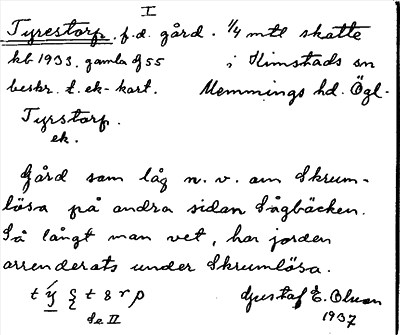 I
Tyrestorp. f.d. gård. 1/4 mtl skatte
kb 1933. gamla 55 i Kimstads sn
beskr. t. ek-kart. Memmings hd. Ögl.
Tyrstorp.
ek.
Gård som låg n. v. om Skrum-
lösa på andra sidan Sågbäcken.
Så långt man vet, har jorden
arrenderats under Skrumlösa.
Se II
Gustaf E. Olsson
1937